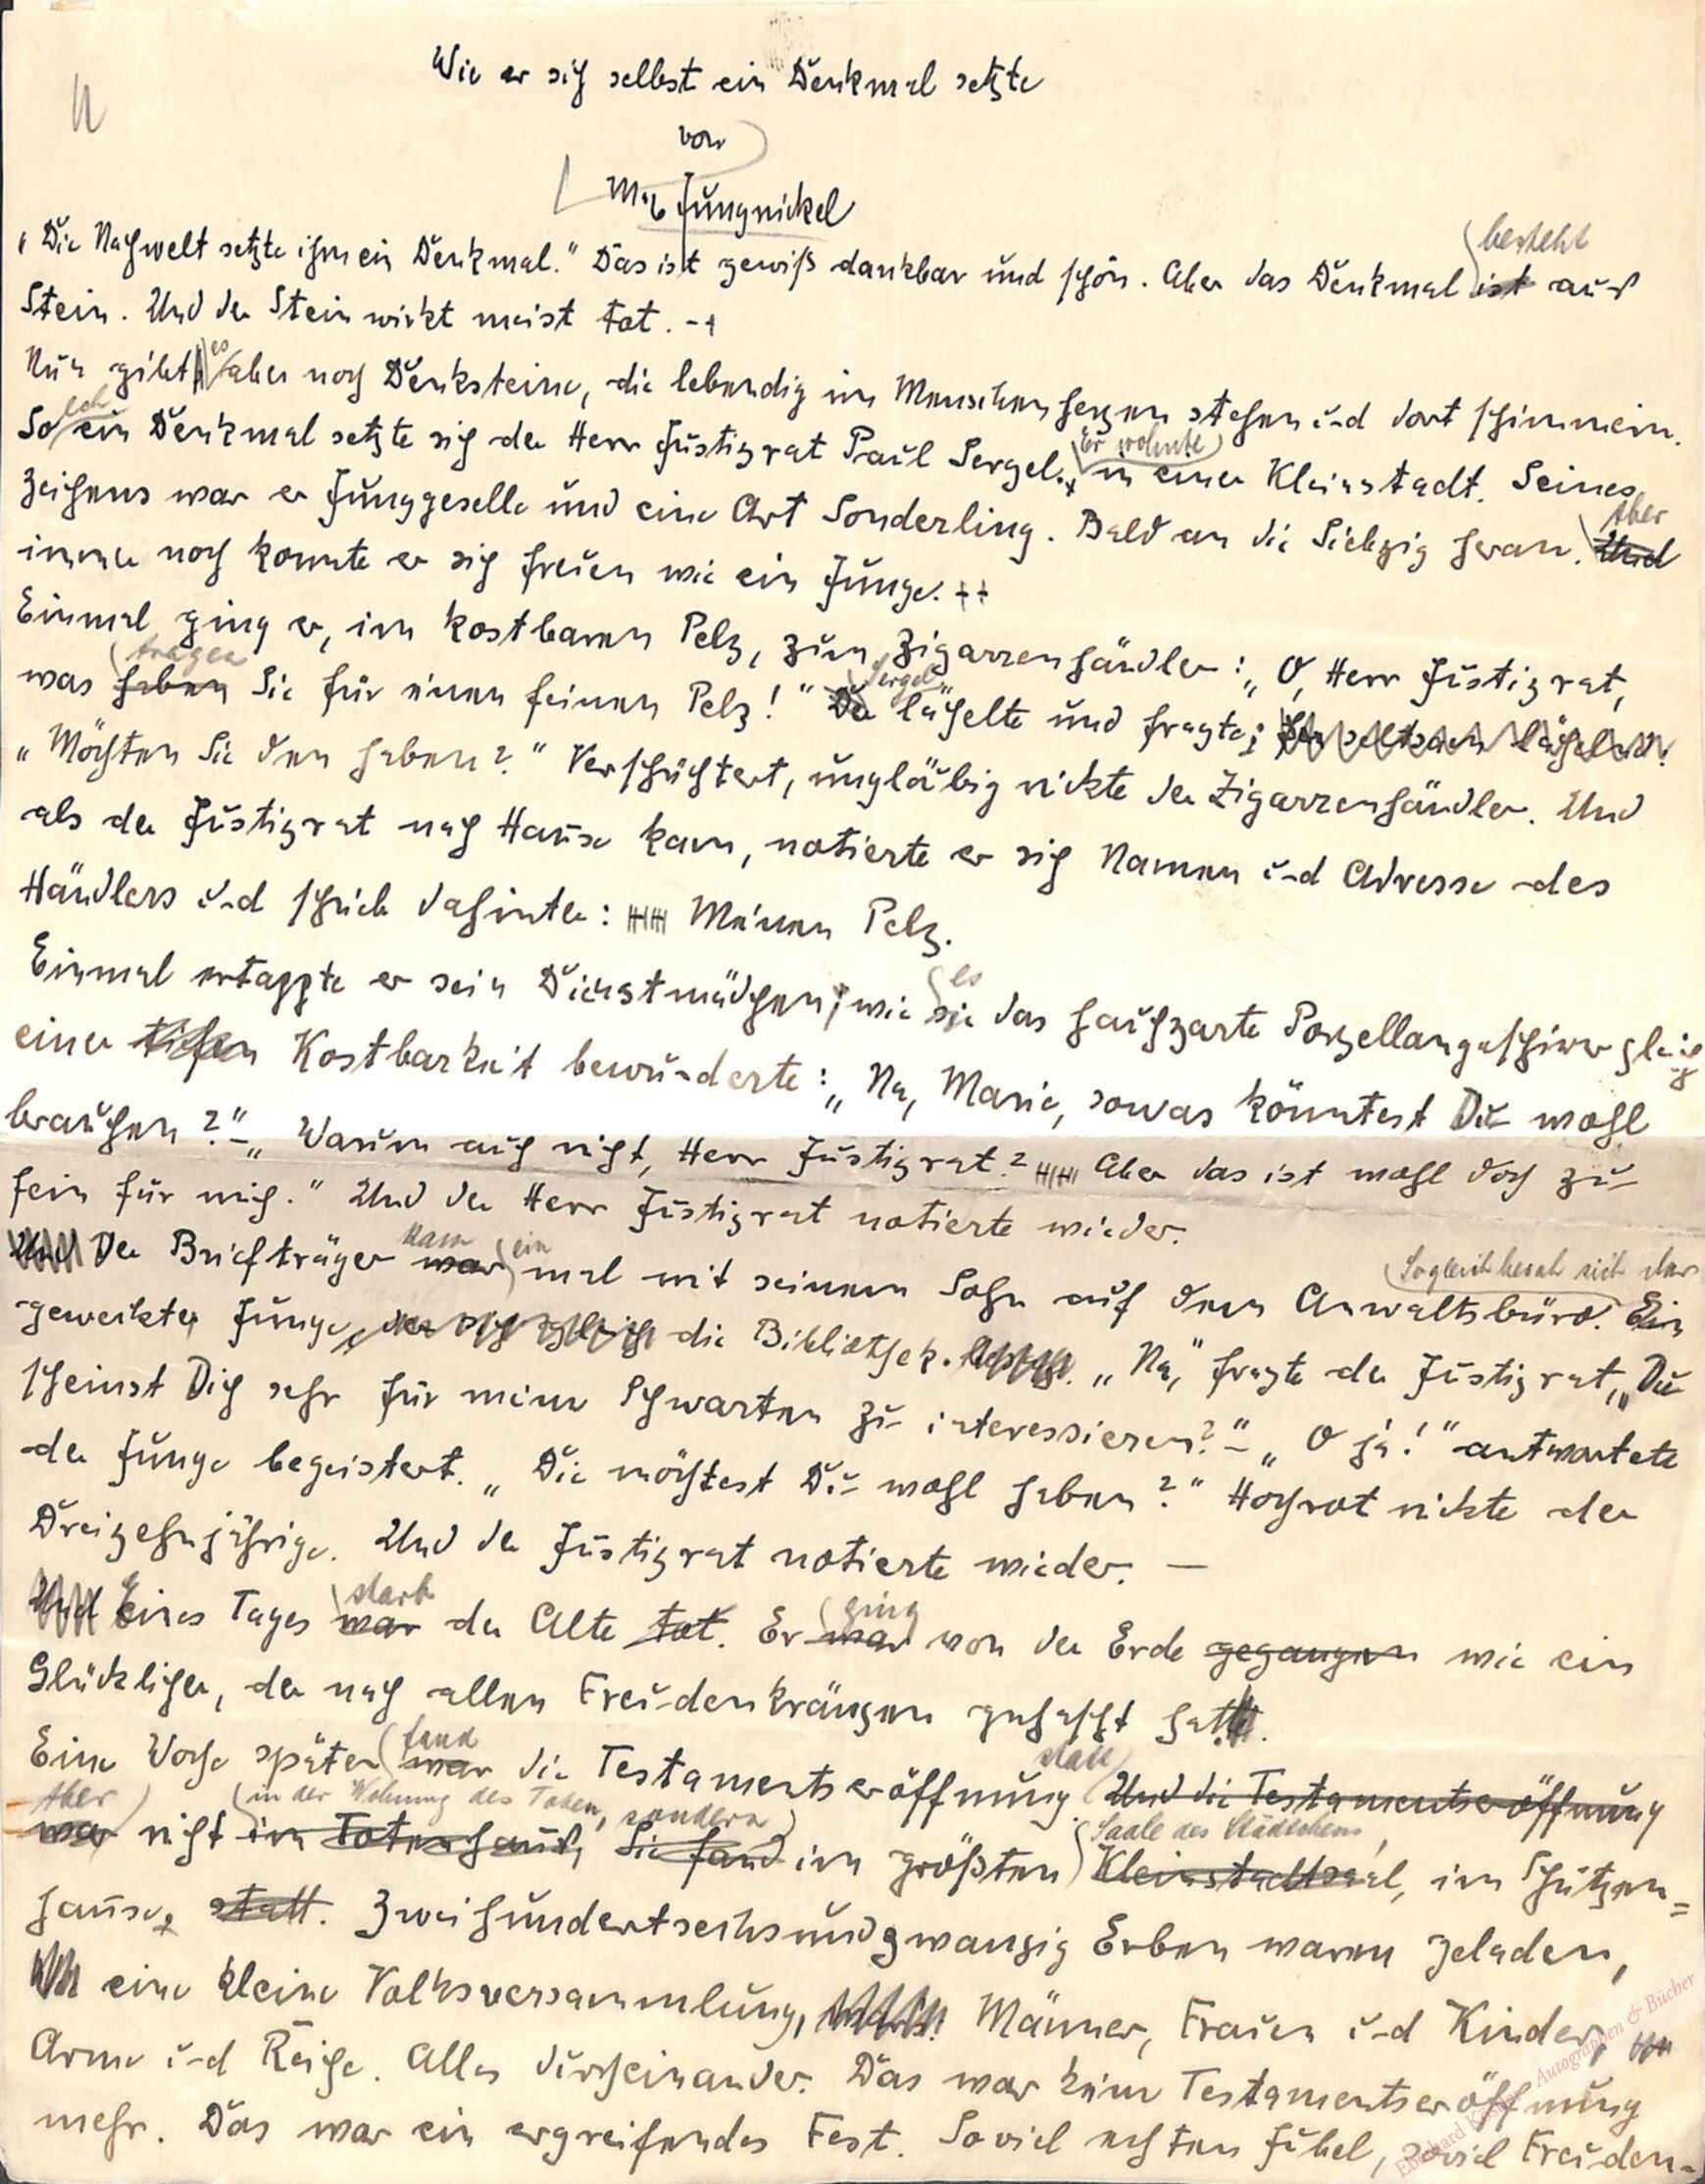 Wie er sich selbst ein Denkmal setzte
von
Max Jungnickel
besteht
„Die Nachwelt setzte ihm ein Denkmal." Das ist gewiß dankbar und schön. Aber das Denkmal ist aus
Stein. Und der Stein wirkt meist tot. -
es
Nun gibt aber noch Denksteine, die lebendig im Menschenherzen stehen und dort schimmern.
solch er wohnte
So ein Denkmal setzte sich der Herr Justizrat Paul Sergel. in einer Kleinstadt. Seines
Aber
Zeichens war er Junggeselle und eine Art Sonderling. Bald an die Siebzig heran. Und
immer noch konnte er sich freuen wie ein Junge.
Einmal ging er, im kostbaren Pelz, zum Zigarrenhändler: „O, Herr Justizrat,
tragen Sergel
was haben Sie für einen feinen Pelz!" Der lächelte und fragte:
„Möchten Sie den haben?" Verschüchtert, ungläubig nickte der Zigarrenhändler. Und
als der Justizrat nach Hause kam, notierte er sich Namen und Adresse des
Händlers und schrieb dahinter: Meinen Pelz.
es
Einmal ertappte er sein Dienstmädchen, wie sie das hauchzarte Porzellangeschirr gleich
einer tiefen Kostbarkeit bewunderte: „Na, Marie, sowas könntest Du wohl
brauchen?" – „Warum auch nicht, Herr Justizrat? Aber das ist wohl doch zu
fein für mich." Und der Herr Justizrat notierte wieder.
kam ein Sogleich besah sich der
Und Der Briefträger war mal mit seinem Sohn auf dem Anwaltsbüro. Ein
geweckter Junge, der sich gleich die Bibliothek. „Na," fragte der Justizrat, „Du
scheinst Dich sehr für meine Schwarten zu interessieren?" – „O ja!" antwortete
der Junge begeistert. „Die möchtest Du wohl haben?" Hochrot nickte der
Dreizehnjährige. Und der Justizrat notierte wieder. —
starb ging
Und Eines Tages war der Alte tot. Er war von der Erde gegangen wie ein
Glücklicher, der nach allen Freudenkränzen gehascht hatte.
fand statt
Eine Woche später war die Testamentseröffnung Und die Testamentseröffnung
Aber in der Wohnung des Toten, sondern Saale des Städtchens,
war nicht im Totenhaus, Sie fand im größten Kleinstadtsaal, im Schützen=
hause, statt. Zweihundertsechsundzwanzig Erben waren geladen,
eine kleine Volksversammlung, Männer, Frauen und Kinder,
Arme und Reiche. Alles durcheinander. Das war keine Testamentseröffnung
mehr. Das war ein ergreifendes Fest. Soviel echten Jubel, soviel Freuden-
Eberhard Köstler Autographen & Bücher